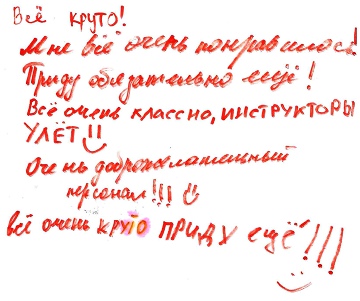 Всё круто!
Мне всё очень понравилось!
Приду обязательно ещё!
Всё очень классно, инструкторы
УЛЁТ
Очень доброжелательный
персонал!!!
всё очень круто ПРИДУ ещё!!!